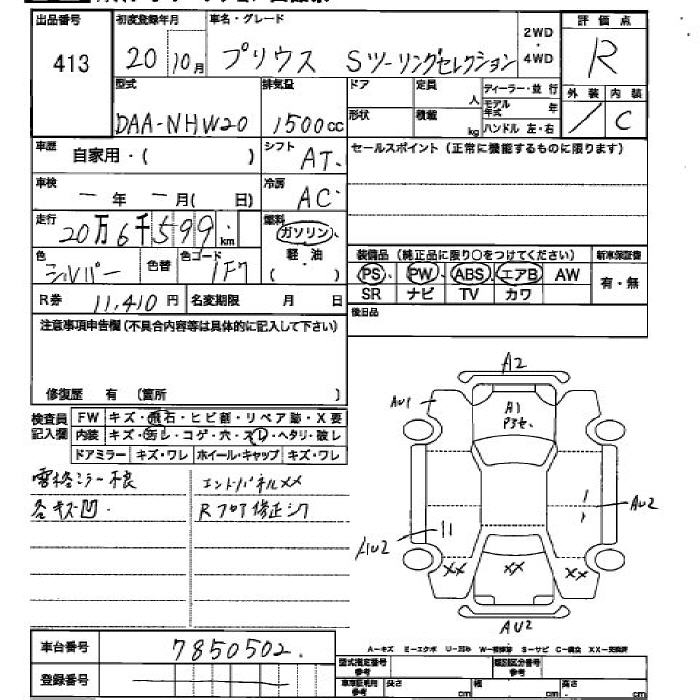 出品番号 初度登録年月 車名・グレード 評価点
413 20 10月 プリウス Sツーリングセレクション 2WD・4WD R
型式 排気量 ドア 定員 人 ディーラー・並行 外装 内装
形状 積載 kg モデル年式 年
DAA-NHW20 1500cc ハンドル 左・右 / C
車歴 自家用・( ) シフト AT. セールスポイント(正常に機能するものに限ります)
車検 ー年ー月( 日) 冷房 AC
走行 20万6千599 km 燃料 ガソリン、軽・油 ( )
装備品(純正品に限り○をつけてください) 新車保証書
色 シルバー 色替 色コード 1F7 PS、PW、ABS、エアB AW 有・無
R券 11,410円 名変期限 月 日 SR ナビ TV カワ
注意事項申告欄(不具合内容等は具体的に記入して下さい) 後日品
修復歴 有 (箇所 )
検査員記入欄 FW キズ・飛石・ヒビ割・リペア跡・X要
内装 キズ・汚レ・コゲ・穴・スレ・ヘタリ・破レ
ドアミラー キズ・ワレ ホイール・キャップ キズ・ワレ
A2
AU1
A1
P3セ
AU2
AU2
XX XX XX
AU2
エンドパネルXX
各キズ凹 Rフロア修正
車台番号 7850502.
登録番号
A-キズ E-エクボ U-凹み W-補修跡 S-サビ C-腐食 XX-交換済
型式指定番号 参考 類別区分番号 参考
車庫証明用 参考 長さ cm 幅 cm 高さ cm